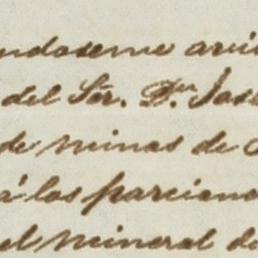 ndoseme avi
del Sōr. Dⁿ José
de minas de
á los parciona
el mineral de